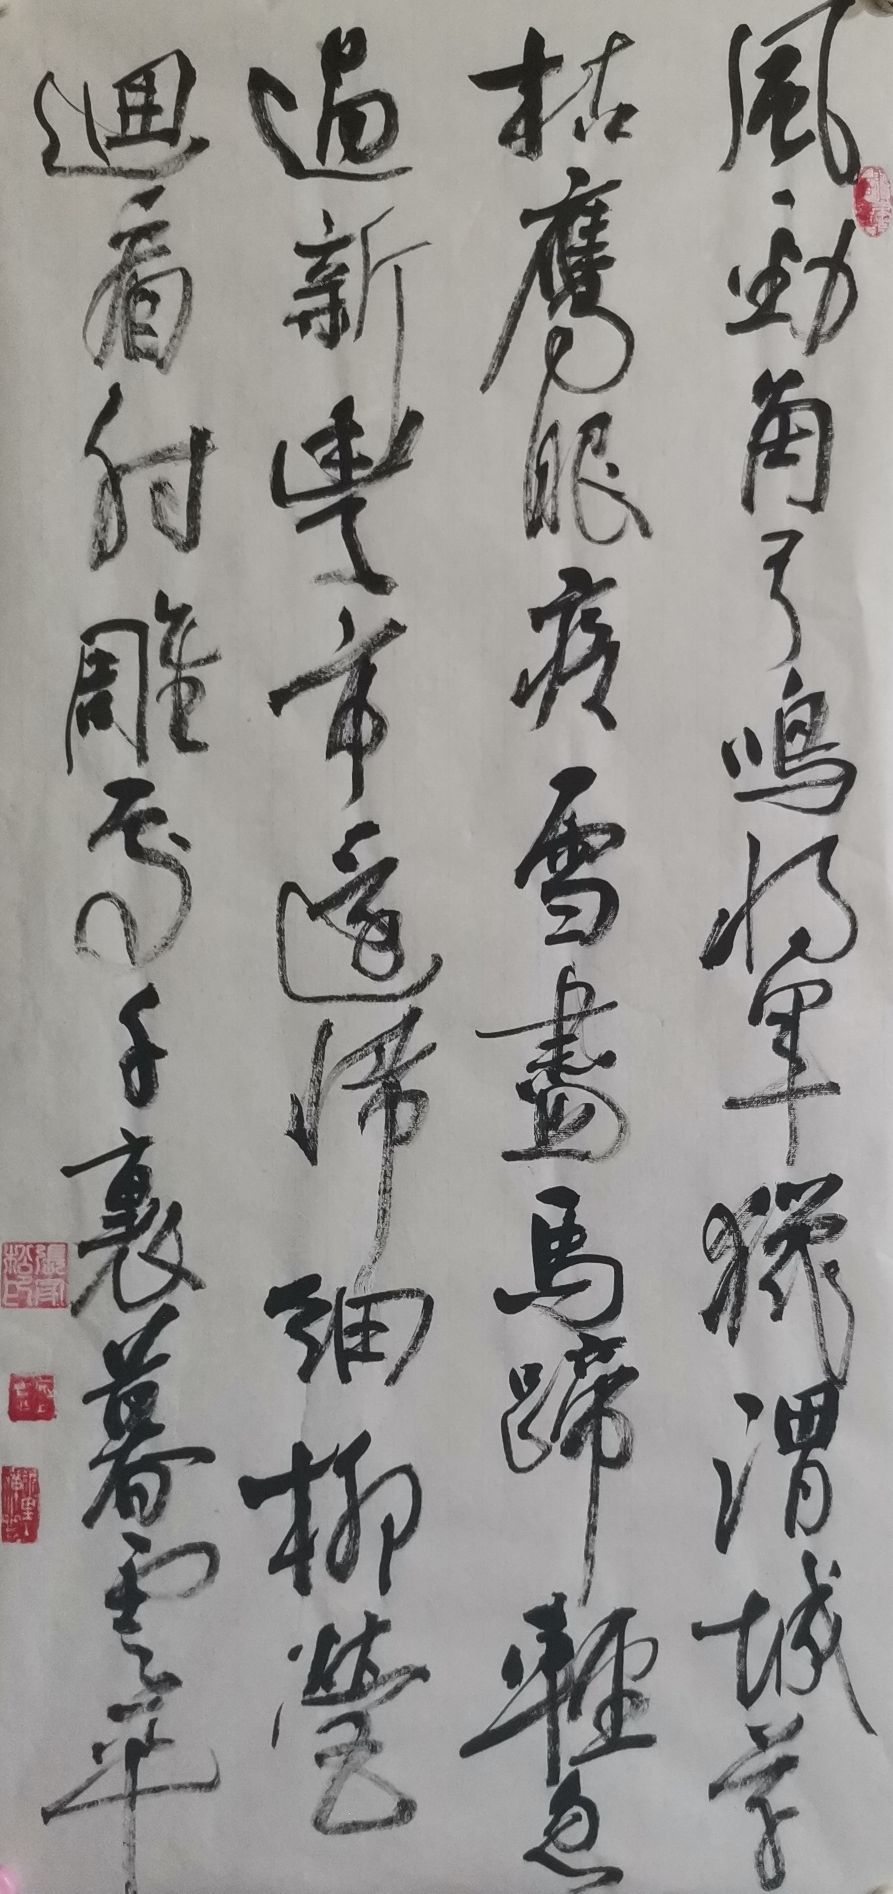 風勁角弓鳴將軍獵渭城草
枯鷹眼疾雪盡馬蹄輕忽
過新豐市還歸細柳營
迴看射雕處千裏暮雲平